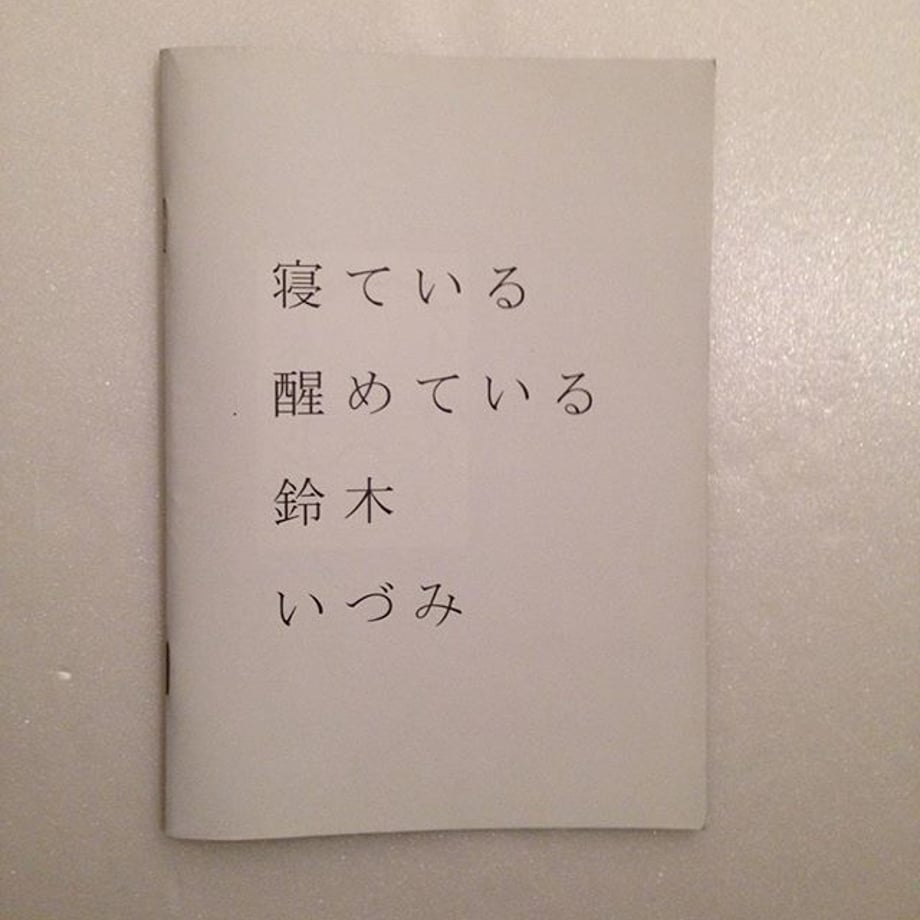 寝ている
醒めている
鈴木
いづみ